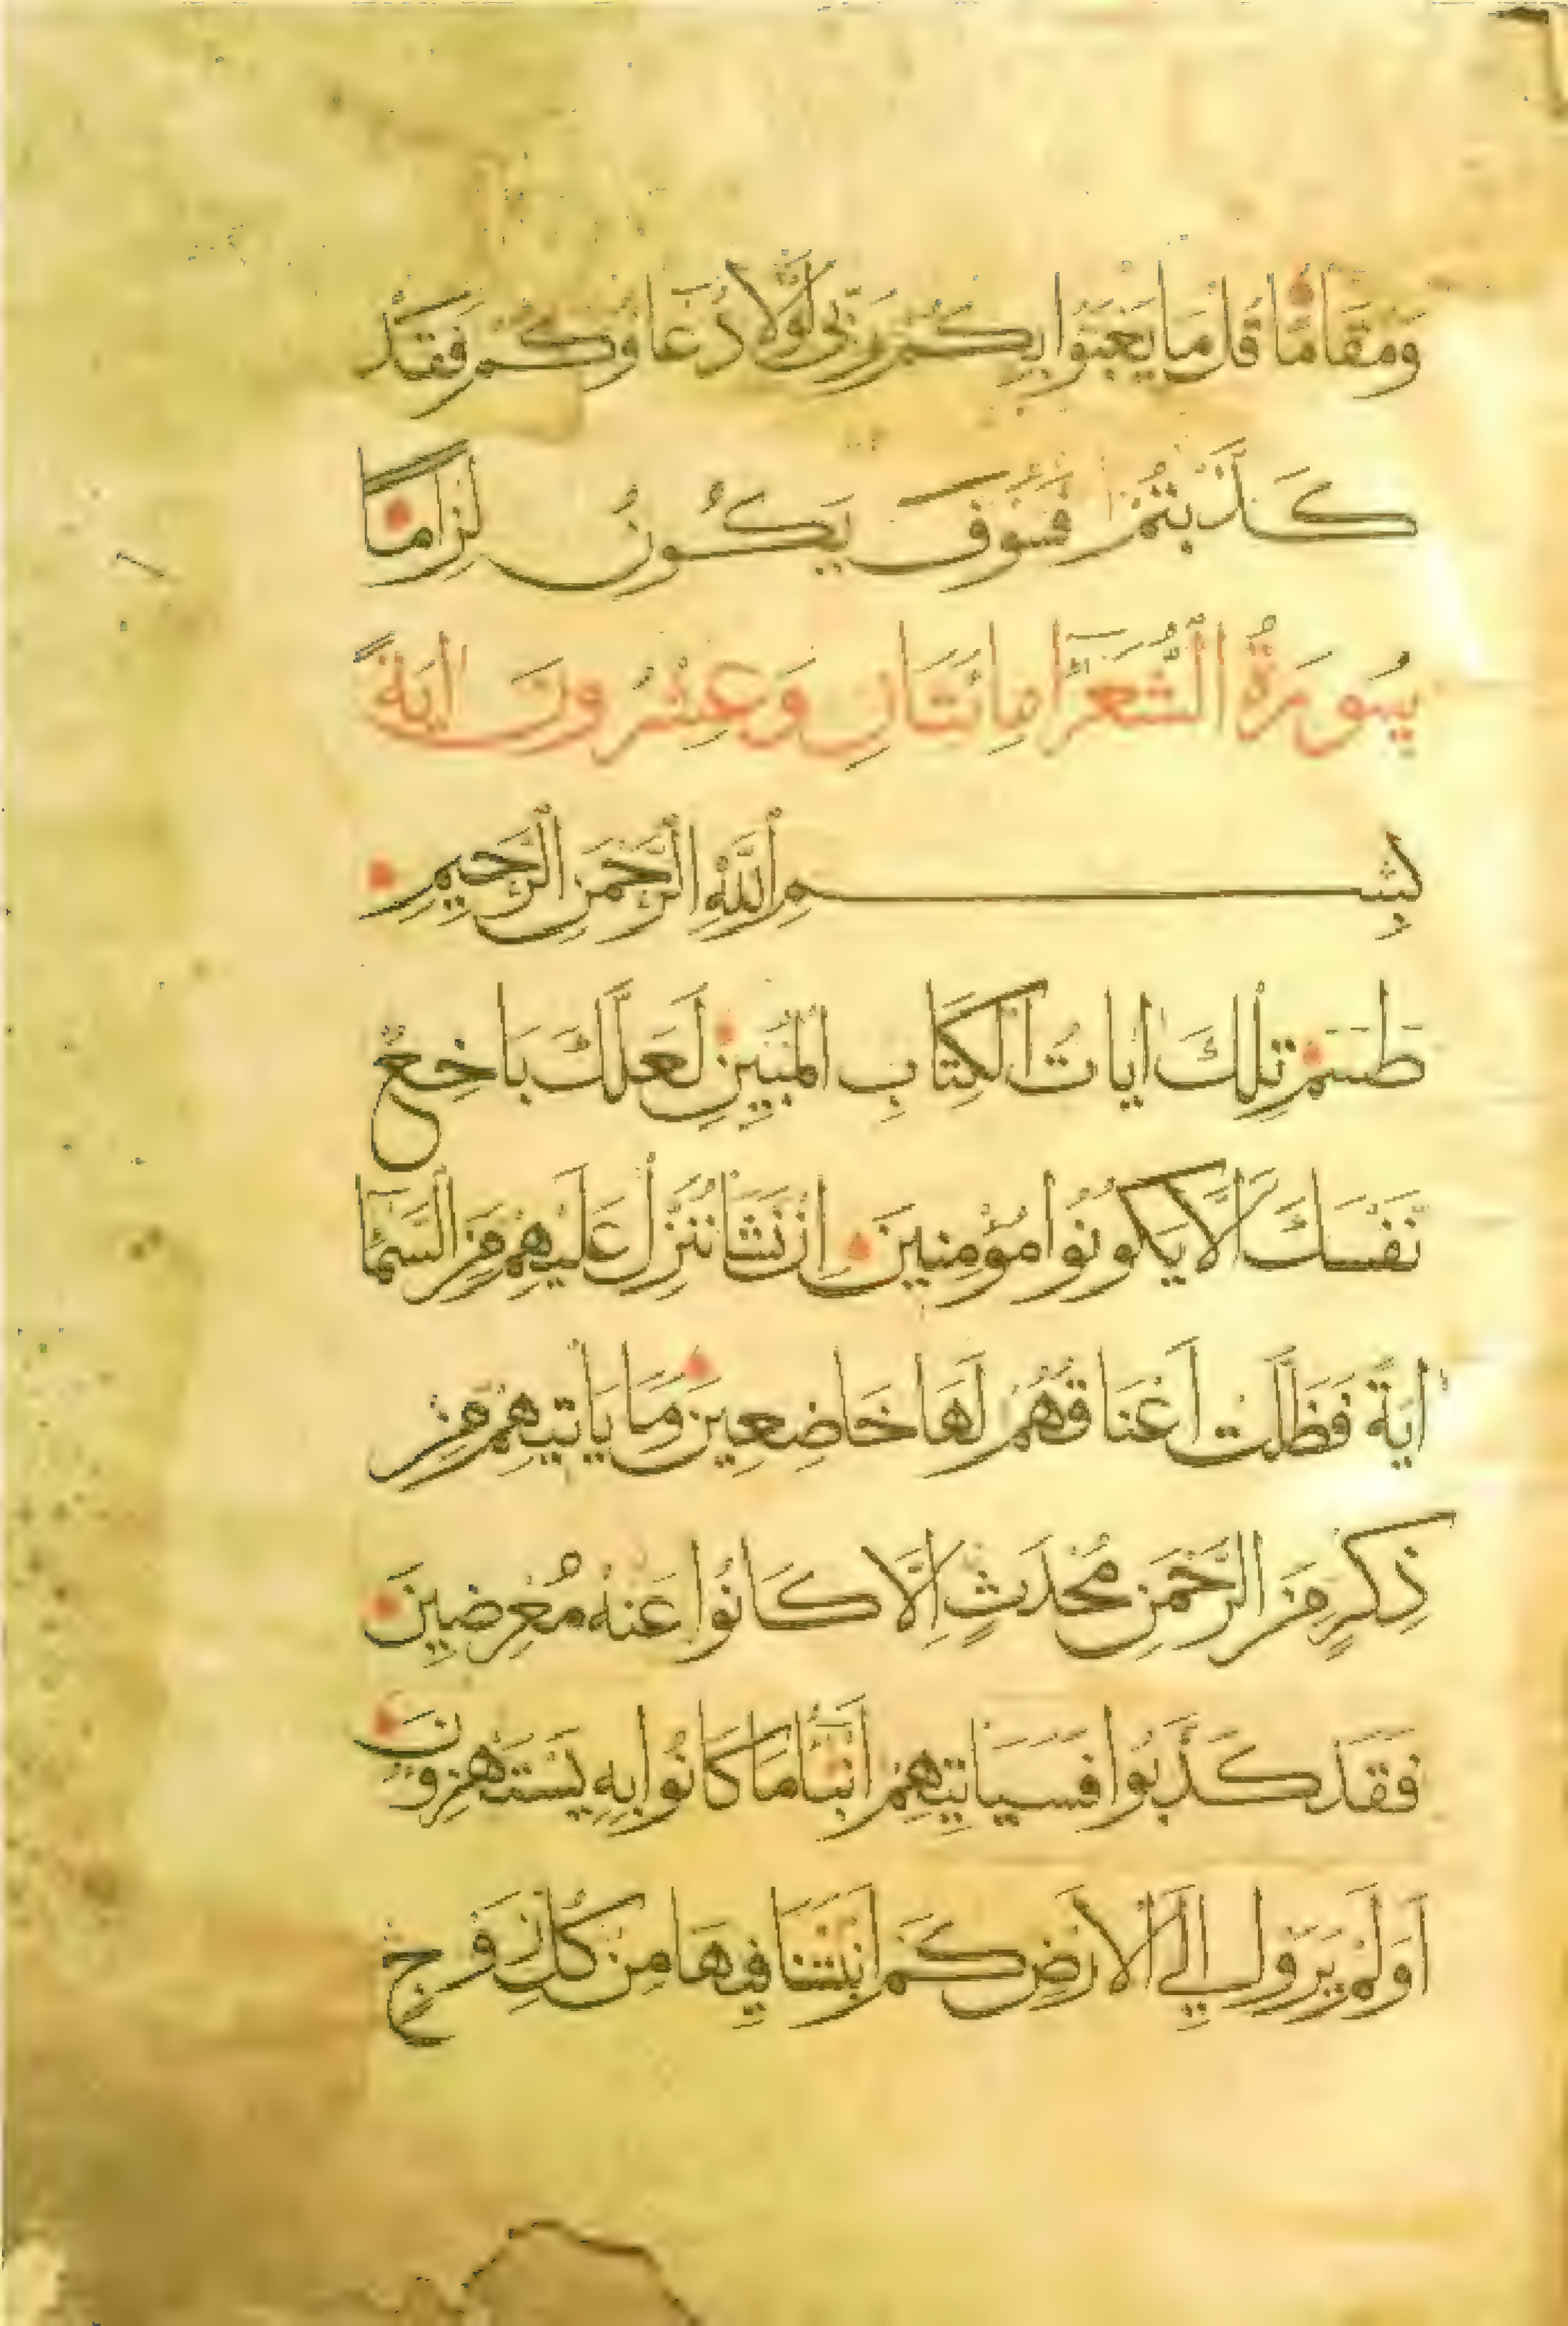 وَمُقَامًا قُلْ مَا يَعْبَؤُا بِكُمْ رَبِّي لَوْلَا دُعَاؤُكُمْ فَقَدْ
كَذَّبْتُمْ فَسَوْفَ يَكُونُ لِزَامًا
سُورَةُ الشُّعَرَآ مِائَتَانِ وَعِشْرُونَ اٰيَةً
بِسْمِ اللَّهِ الرَّحْمَنِ الرَّحِيمِ
طسم تِلْكَ ايَاتُ الْكِتَابِ الْمُبِينِ لَعَلَّكَ بَاخِعٌ
نَفْسَكَ اَلَّا يَكُونُوا مُؤْمِنِينَ اِنْ نَشَأْ نُنَزِّلْ عَلَيْهِمْ مِنَ السَّمَآ
ايَةً فَظَلَّتْ اَعْنَاقُهُمْ لَهَا خَاضِعِينَ وَمَا يَاتِيهِمْ مِنْ
ذِكْرٍ مِنَ الرَّحْمَنِ مُحْدَثٍ اِلَّا كَانُوا عَنْهُ مُعْرِضِينَ
فَقَدْ كَذَّبُوا فَسَيَاتِيهِمْ اَنْبَٓا مَا كَانُوا بِهِ يَسْتَهْزِؤنَ
اَوَلَمْ يَرَوْا اِلَى الْاَرْضِ كَمْ اَنْبَتْنَا فِيهَا مِنْ كُلِّ زَوْجٍ